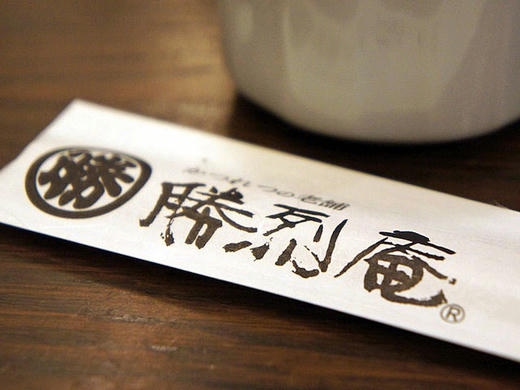 勝
かつれつの老舗
勝烈庵®